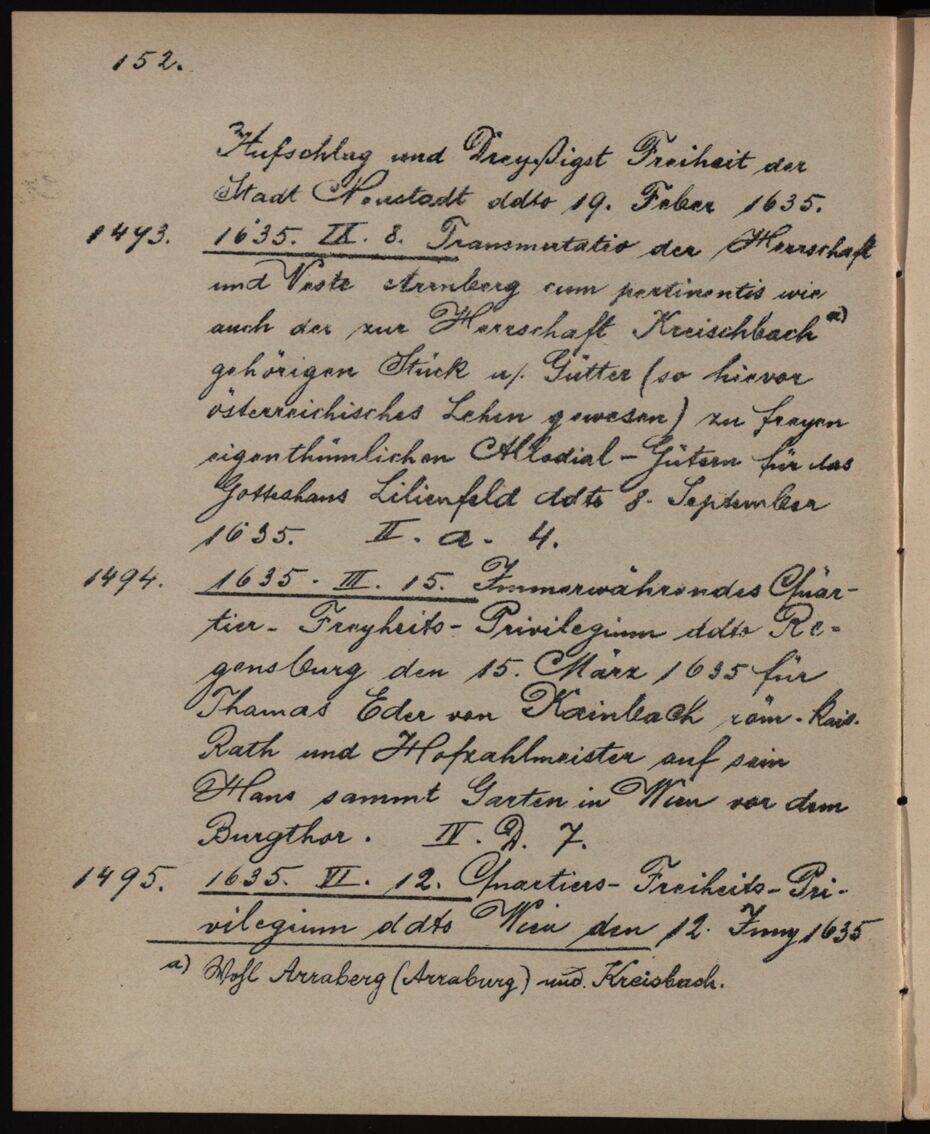 152.
Hufschlag und Dreyßigst Freiheit der
Stadt Neustadt ddto 19. Feber 1635.
1493. 1635. IX. 8. Transmutatio der Herrschaft
und Veste Arenberg cum pertinentis wie
auch der zur Herrschaft Kreischbach a)
gehörigen Stück u/. Gütter (so hievor
österreichisches Lehen gewesen) zu freyen
eigenthümlichen Allodial-Gütern für das
Gotteshaus Lilienfeld ddto 8. September
1635. II. a. 4.
1494. 1635. III. 15. Immerwährendes Quar-
tier-Freyheits-Privilegium ddto Re-
gensburg den 15. März 1635 für
Thamas Eder von Kainbach röm. kais.
Rath und Hofzahlmeister auf sein
Haus sammt Garten in Wien vor dem
Burgthor. IV. D. 7.
1495. 1635. VI. 12. Quartiers-Freiheits-Pri-
vilegium ddto Wien den 12. Juny 1635
a) Wohl Arraberg (Arraburg) und Kreisbach.